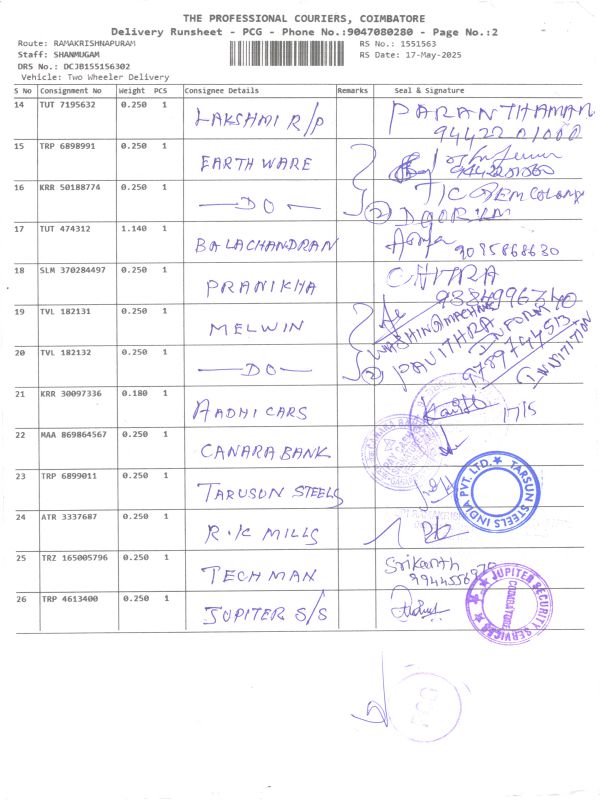 THE PROFESSIONAL COURIERS, COIMBATORE
Delivery Runsheet - PCG - Phone No.:9047080280 - Page No.:2
Route: RAMAKRISHNAPURAM RS No.: 1551563
Staff: SHANMUGAM RS Date: 17-May-2025
DRS No.: DCJB155156302
Vehicle: Two Wheeler Delivery
S No Consignment No Weight PCS Consignee Details Remarks Seal & Signature
14 TUT 7195632 0.250 1 LAKSHMI R/P PARANTHAMAN
9442201000
15 TRP 6898991 0.250 1 EARTHWARE
16 KRR 50188774 0.250 1 —DO— 2
17 TUT 474312 1.140 1 BALACHANDRAN 9095868630
18 SLM 370284497 0.250 1 PRANIKHA CHITRA
19 TVL 182131 0.250 1 MELWIN 9384996340
WASHING MACHINE
20 TVL 182132 0.250 1 —DO— 2 PAVITHRA
21 KRR 30097336 0.180 1 AADHI CARS 17/5
22 MAA 869864567 0.250 1 CANARA BANK
23 TRP 6899011 0.250 1 TARUSON STEELS
TARSUN STEELS INDIA PVT. LTD.
24 ATR 3337687 0.250 1 R.K MILLS
25 TRZ 165005796 0.250 1 TECHMAN Srikanth
26 TRP 4613400 0.250 1 JUPITER S/S
JUPITER SECURITY SERVICES
COIMBATORE